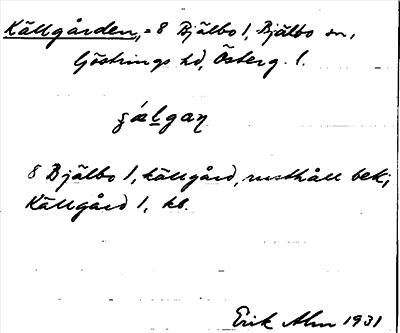 Källgården, = 8 Bjälbo 1, Bjälbo sn,
Göstrings hd, Österg. l.
8 Bjälbo 1, källgård, rusthåll bek;
Källgård 1, kb.
Erik Alm 1931